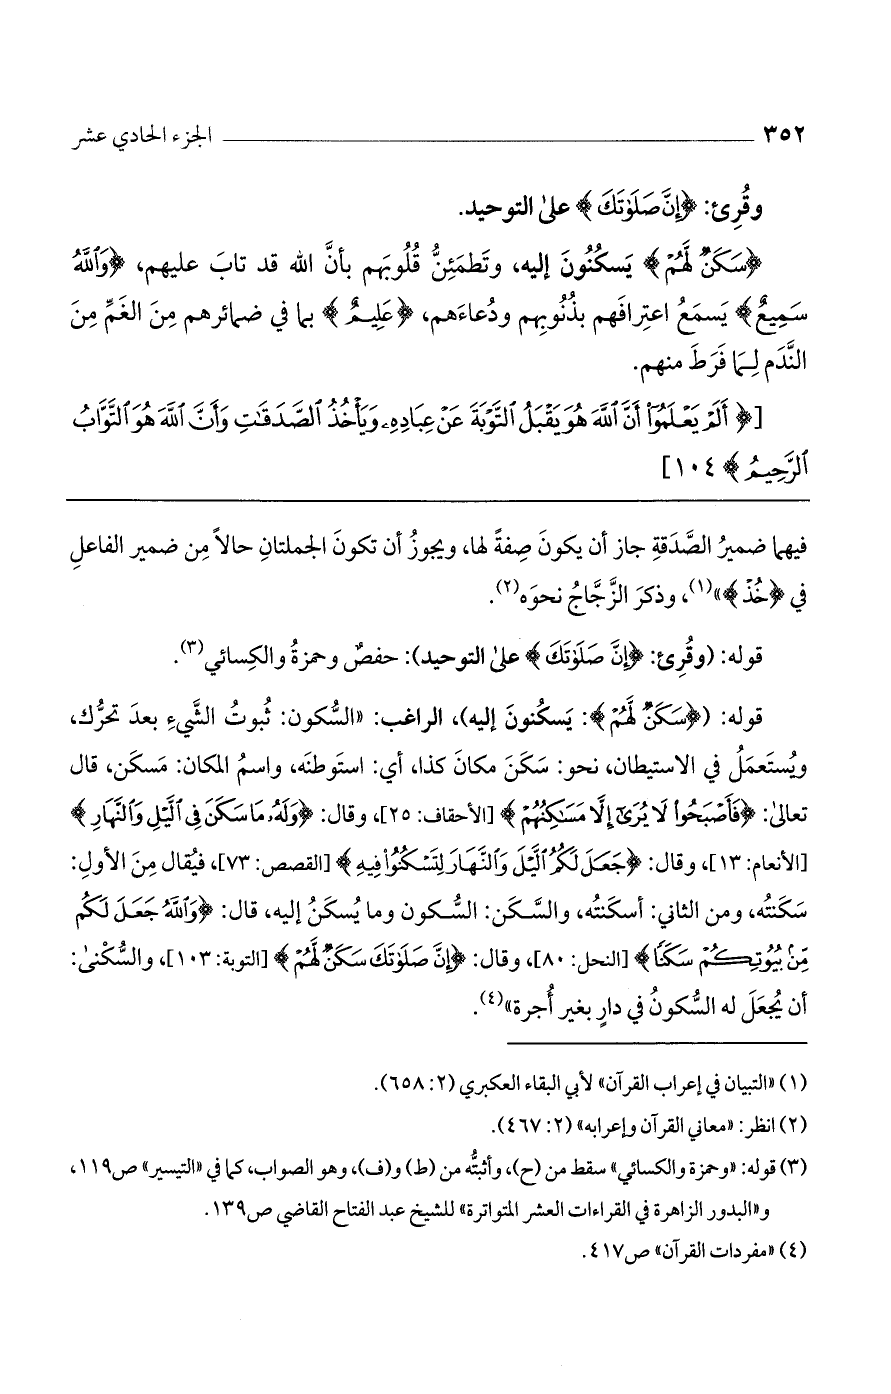 ٣٥٢ الجزء الحادي عشر
وقُرِئ: ﴿إِنَّ صَلَوٰتَكَ﴾ علىٰ التوحيد.
﴿سَكَنٌ لَّهُمْ﴾ يَسكُنُونَ إليه، وتَطمَئِنُّ قُلُوبَهم بأنَّ الله قد تابَ عليهم، ﴿وَٱللَّهُ
سَمِيعٌ﴾ يَسمَعُ اعتِرافَهم بذُنُوبِهم ودُعاءَهم، ﴿عَلِيمٌ﴾ بما في ضمائرهم مِنَ الغَمِّ مِنَ
النَّدَم لِـمَا فَرَطَ منهم.
[﴿أَلَمْ يَعْلَمُوٓا۟ أَنَّ ٱللَّهَ هُوَ يَقْبَلُ ٱلتَّوْبَةَ عَنْ عِبَادِهِۦ وَيَأْخُذُ ٱلصَّدَقَـٰتِ وَأَنَّ ٱللَّهَ هُوَ ٱلتَّوَّابُ
ٱلرَّحِيمُ﴾ ١٠٤]
فيهما ضميرُ الصَّدَقةِ جاز أن يكونَ صِفةً لها، ويجوزُ أن تكونَ الجملتانِ حالاً مِن ضمير الفاعلِ
في ﴿خُذْ﴾»(١)، وذكرَ الزَّجَّاجُ نحوَه(٢).
قوله: (وقُرِئ: ﴿إِنَّ صَلَوٰتَكَ﴾ علىٰ التوحيد): حفصٌ وحمزةُ والكِسائي(٣).
قوله: (﴿سَكَنٌ لَّهُمْ﴾: يَسكنونَ إليه)، الراغب: «السُّكون: ثُبوتُ الشَّيءِ بعدَ تحرُّك،
ويُستَعمَلُ في الاستيطان، نحو: سَكَنَ مكانَ كذا، أي: استَوطنَه، واسمُ المكان: مَسكَن، قال
تعالىٰ: ﴿فَأَصْبَحُوا۟ لَا يُرَىٰٓ إِلَّا مَسَـٰكِنُهُمْ﴾ [الأحقاف: ٢٥]، وقال: ﴿وَلَهُۥ مَا سَكَنَ فِى ٱلَّيْلِ وَٱلنَّهَارِ﴾
[الأنعام: ١٣]، وقال: ﴿جَعَلَ لَكُمُ ٱلَّيْلَ وَٱلنَّهَارَ لِتَسْكُنُوا۟ فِيهِ﴾ [القصص: ٧٣]، فيُقال مِنَ الأولِ:
سَكَنتُه، ومن الثاني: أسكَنتُه، والسَّكَن: السُّكون وما يُسكَنُ إليه، قال: ﴿وَٱللَّهُ جَعَلَ لَكُم
مِّنۢ بُيُوتِكُمْ سَكَنًا﴾ [النحل: ٨٠]، وقال: ﴿إِنَّ صَلَوٰتَكَ سَكَنٌ لَّهُمْ﴾ [التوبة: ١٠٣]، والسُّكْنىٰ:
أن يُجعَلَ له السُّكونُ في دارٍ بغير أُجرة»(٤).
(١) «التبيان في إعراب القرآن» لأبي البقاء العكبري (٢: ٦٥٨).
(٢) انظر: «معاني القرآن وإعرابه» (٢: ٤٦٧).
(٣) قوله: «وحمزة والكسائي» سقط من (ح)، وأثبتُّه من (ط) و(ف)، وهو الصواب، كما في «التيسير» ص١١٩،
و«البدور الزاهرة في القراءات العشر المتواترة» للشيخ عبد الفتاح القاضي ص١٣٩.
(٤) «مفردات القرآن» ص٤١٧.